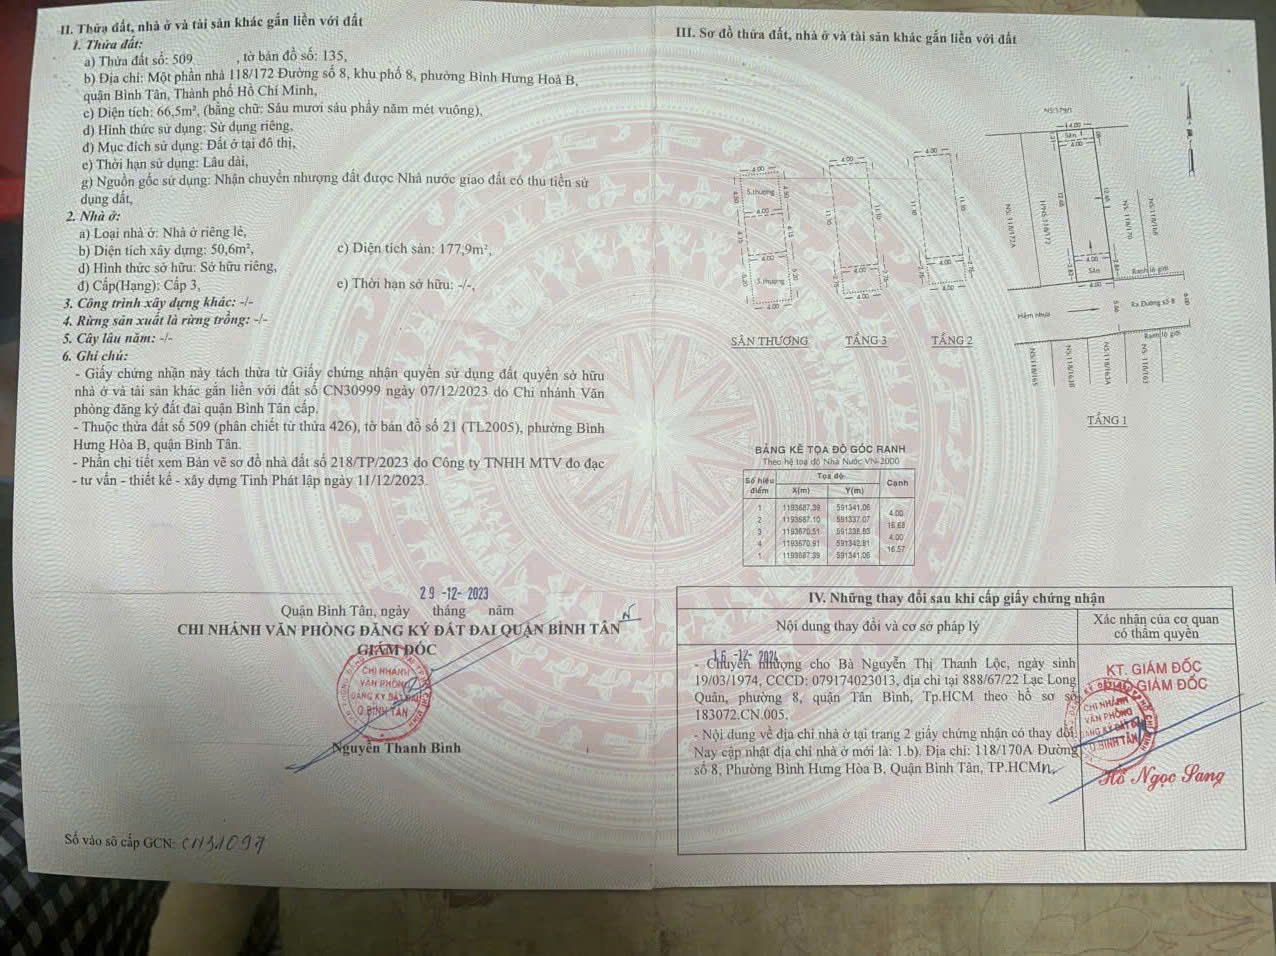 II. Thửa đất, nhà ở và tài sản khác gắn liền với đất
1. Thửa đất:
a) Thửa đất số: 509 , tờ bản đồ số: 135,
b) Địa chỉ: Một phần nhà 118/172 Đường số 8, khu phố 8, phường Bình Hưng Hoà B,
quận Bình Tân, Thành phố Hồ Chí Minh,
c) Diện tích: 66,5m², (bằng chữ: Sáu mươi sáu phẩy năm mét vuông),
d) Hình thức sử dụng: Sử dụng riêng,
đ) Mục đích sử dụng: Đất ở tại đô thị,
e) Thời hạn sử dụng: Lâu dài,
g) Nguồn gốc sử dụng: Nhận chuyển nhượng đất được Nhà nước giao đất có thu tiền sử
dụng đất,
2. Nhà ở:
a) Loại nhà ở: Nhà ở riêng lẻ,
b) Diện tích xây dựng: 50,6m², c) Diện tích sàn: 177,9m²,
d) Hình thức sở hữu: Sở hữu riêng,
đ) Cấp(Hạng): Cấp 3, e) Thời hạn sở hữu: -/-,
3. Công trình xây dựng khác: -/-
4. Rừng sản xuất là rừng trồng: -/-
5. Cây lâu năm: -/-
6. Ghi chú:
- Giấy chứng nhận này tách thửa từ Giấy chứng nhận quyền sử dụng đất quyền sở hữu
nhà ở và tài sản khác gắn liền với đất số CN30999 ngày 07/12/2023 do Chi nhánh Văn
phòng đăng ký đất đai quận Bình Tân cấp.
- Thuộc thửa đất số 509 (phân chiết từ thửa 426), tờ bản đồ số 21 (TL2005), phường Bình
Hưng Hòa B, quận Bình Tân.
- Phần chi tiết xem Bản vẽ sơ đồ nhà đất số 218/TP/2023 do Công ty TNHH MTV đo đạc
- tư vấn - thiết kế - xây dựng Tinh Phát lập ngày 11/12/2023.
29 -12- 2023
Quận Bình Tân, ngày tháng năm
CHI NHÁNH VĂN PHÒNG ĐĂNG KÝ ĐẤT ĐAI QUẬN BÌNH TÂN
GIÁM ĐỐC
CHI NHÁNH
VĂN PHÒNG
ĐĂNG KÝ ĐẤT ĐAI
Q.BÌNH TÂN
Nguyễn Thanh Bình
Số vào sổ cấp GCN: CN31097
III. Sơ đồ thửa đất, nhà ở và tài sản khác gắn liền với đất
NS:179/1
4.00
Sân
4.00
12.65
12.65
NS: 118/172A
1PNS:118/172
NS: 118/170
NS:118/168
4.00
Sân
4.00
Ranh lộ giới
Hẻm nhựa
5.66
Ra Đường số 8
6.00
Ranh lộ giới
NS:118/165
NS:118/163B
NS:118/163A
NS: 118/163
TẦNG 1
4.00
S.thượng
4.50
4.50
4.00
4.15
4.15
4.00
5.20
5.20
S.thượng
4.00
SÂN THƯỢNG
4.00
11.10
11.10
4.00
2.75
2.75
4.00
TẦNG 3
4.00
11.10
11.10
4.00
2.75
2.75
4.00
TẦNG 2
BẢNG KÊ TỌA ĐỘ GÓC RANH
Theo hệ toạ độ Nhà Nước VN-2000
Số hiệu điểm Tọa độ Cạnh
X(m) Y(m)
1 1193687.39 591341.06
4.00
2 1193687.10 591337.07
16.68
3 1193670.51 591338.83
4.00
4 1193670.91 591342.81
16.57
1 1193687.39 591341.06
IV. Những thay đổi sau khi cấp giấy chứng nhận
Nội dung thay đổi và cơ sở pháp lý
Xác nhận của cơ quan
có thẩm quyền
16 -12- 2024
- Chuyển nhượng cho Bà Nguyễn Thị Thanh Lộc, ngày sinh
19/03/1974, CCCD: 079174023013, địa chỉ tại 888/67/22 Lạc Long
Quân, phường 8, quận Tân Bình, Tp.HCM theo hồ sơ số
183072.CN.005.
- Nội dung về địa chỉ nhà ở tại trang 2 giấy chứng nhận có thay đổi.
Nay cập nhật địa chỉ nhà ở mới là: 1.b). Địa chỉ: 118/170A Đường
số 8, Phường Bình Hưng Hòa B, Quận Bình Tân, TP.HCM
KT. GIÁM ĐỐC
PHÓ GIÁM ĐỐC
CHI NHÁNH
VĂN PHÒNG
ĐĂNG KÝ ĐẤT ĐAI
Q.BÌNH TÂN
Hồ Ngọc Sang